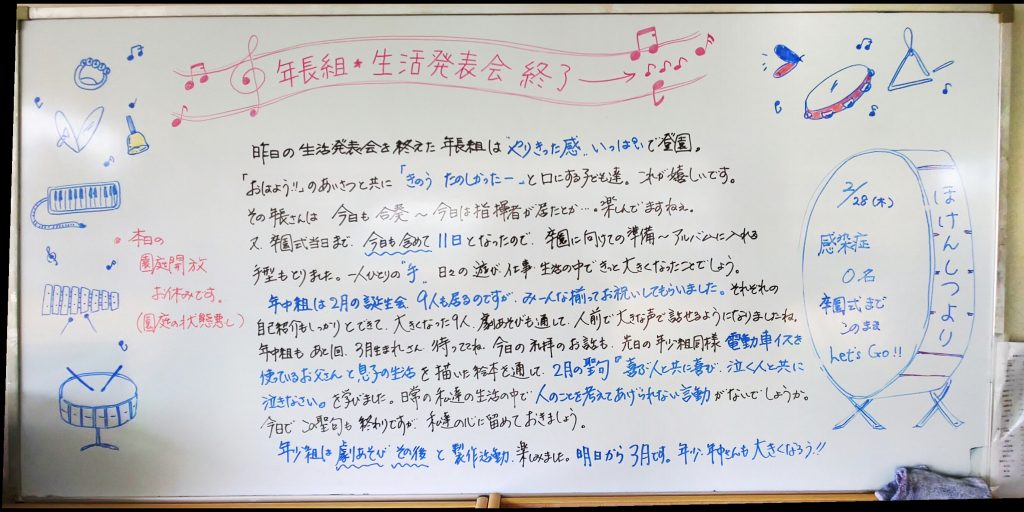 年長組★生活発表会 終了→
昨日の生活発表会を終えた年長組は"やりきった感"いっぱいで登園。
「おはよう!!」のあいさつと共に「きのう たのしかったー」と口にする子ども達。これが嬉しいです。
その年長さんは 今日も合奏～今日は指揮者が居たとか…。楽しんでますねぇ。
又、卒園式当日まで、今日も含めて11日となったので、卒園に向けての準備～アルバムに入れる
手型もとりました。一人ひとりの"手"、日々の遊び・仕事・生活の中できっと大きくなったことでしょう。
年中組は2月の誕生会 9人も居るのですが、みーんな揃ってお祝いしてもらいました。それぞれの
自己紹介もしっかりとできて、大きくなった9人、劇あそびも通して、人前で大きな声で話せるようになりましたね。
年中組も あと1回、3月生まれさん 待っててね。今日の礼拝のお話も、先日の年少組同様、電動車イスを
使っているお父さんと息子の生活を描いた絵本を通して、2月の聖句『喜ぶ人と共に喜び、泣く人と共に
泣きなさい。』を学びました。日常の私達の生活の中で人のことを考えてあげられない言動がないでしょうか。
今日でこの聖句も終わりですが、私達の心に留めておきましょう。
年少組は劇あそび その後 と製作活動、楽しみました。明日から3月です。年少・年中さんも大きくなろう!!
本日の
園庭開放
お休みです。
(園庭の状態悪し)
ほけんしつより
2/28(木)
感染症
0名
卒園式まで
このまま
Let's Go!!